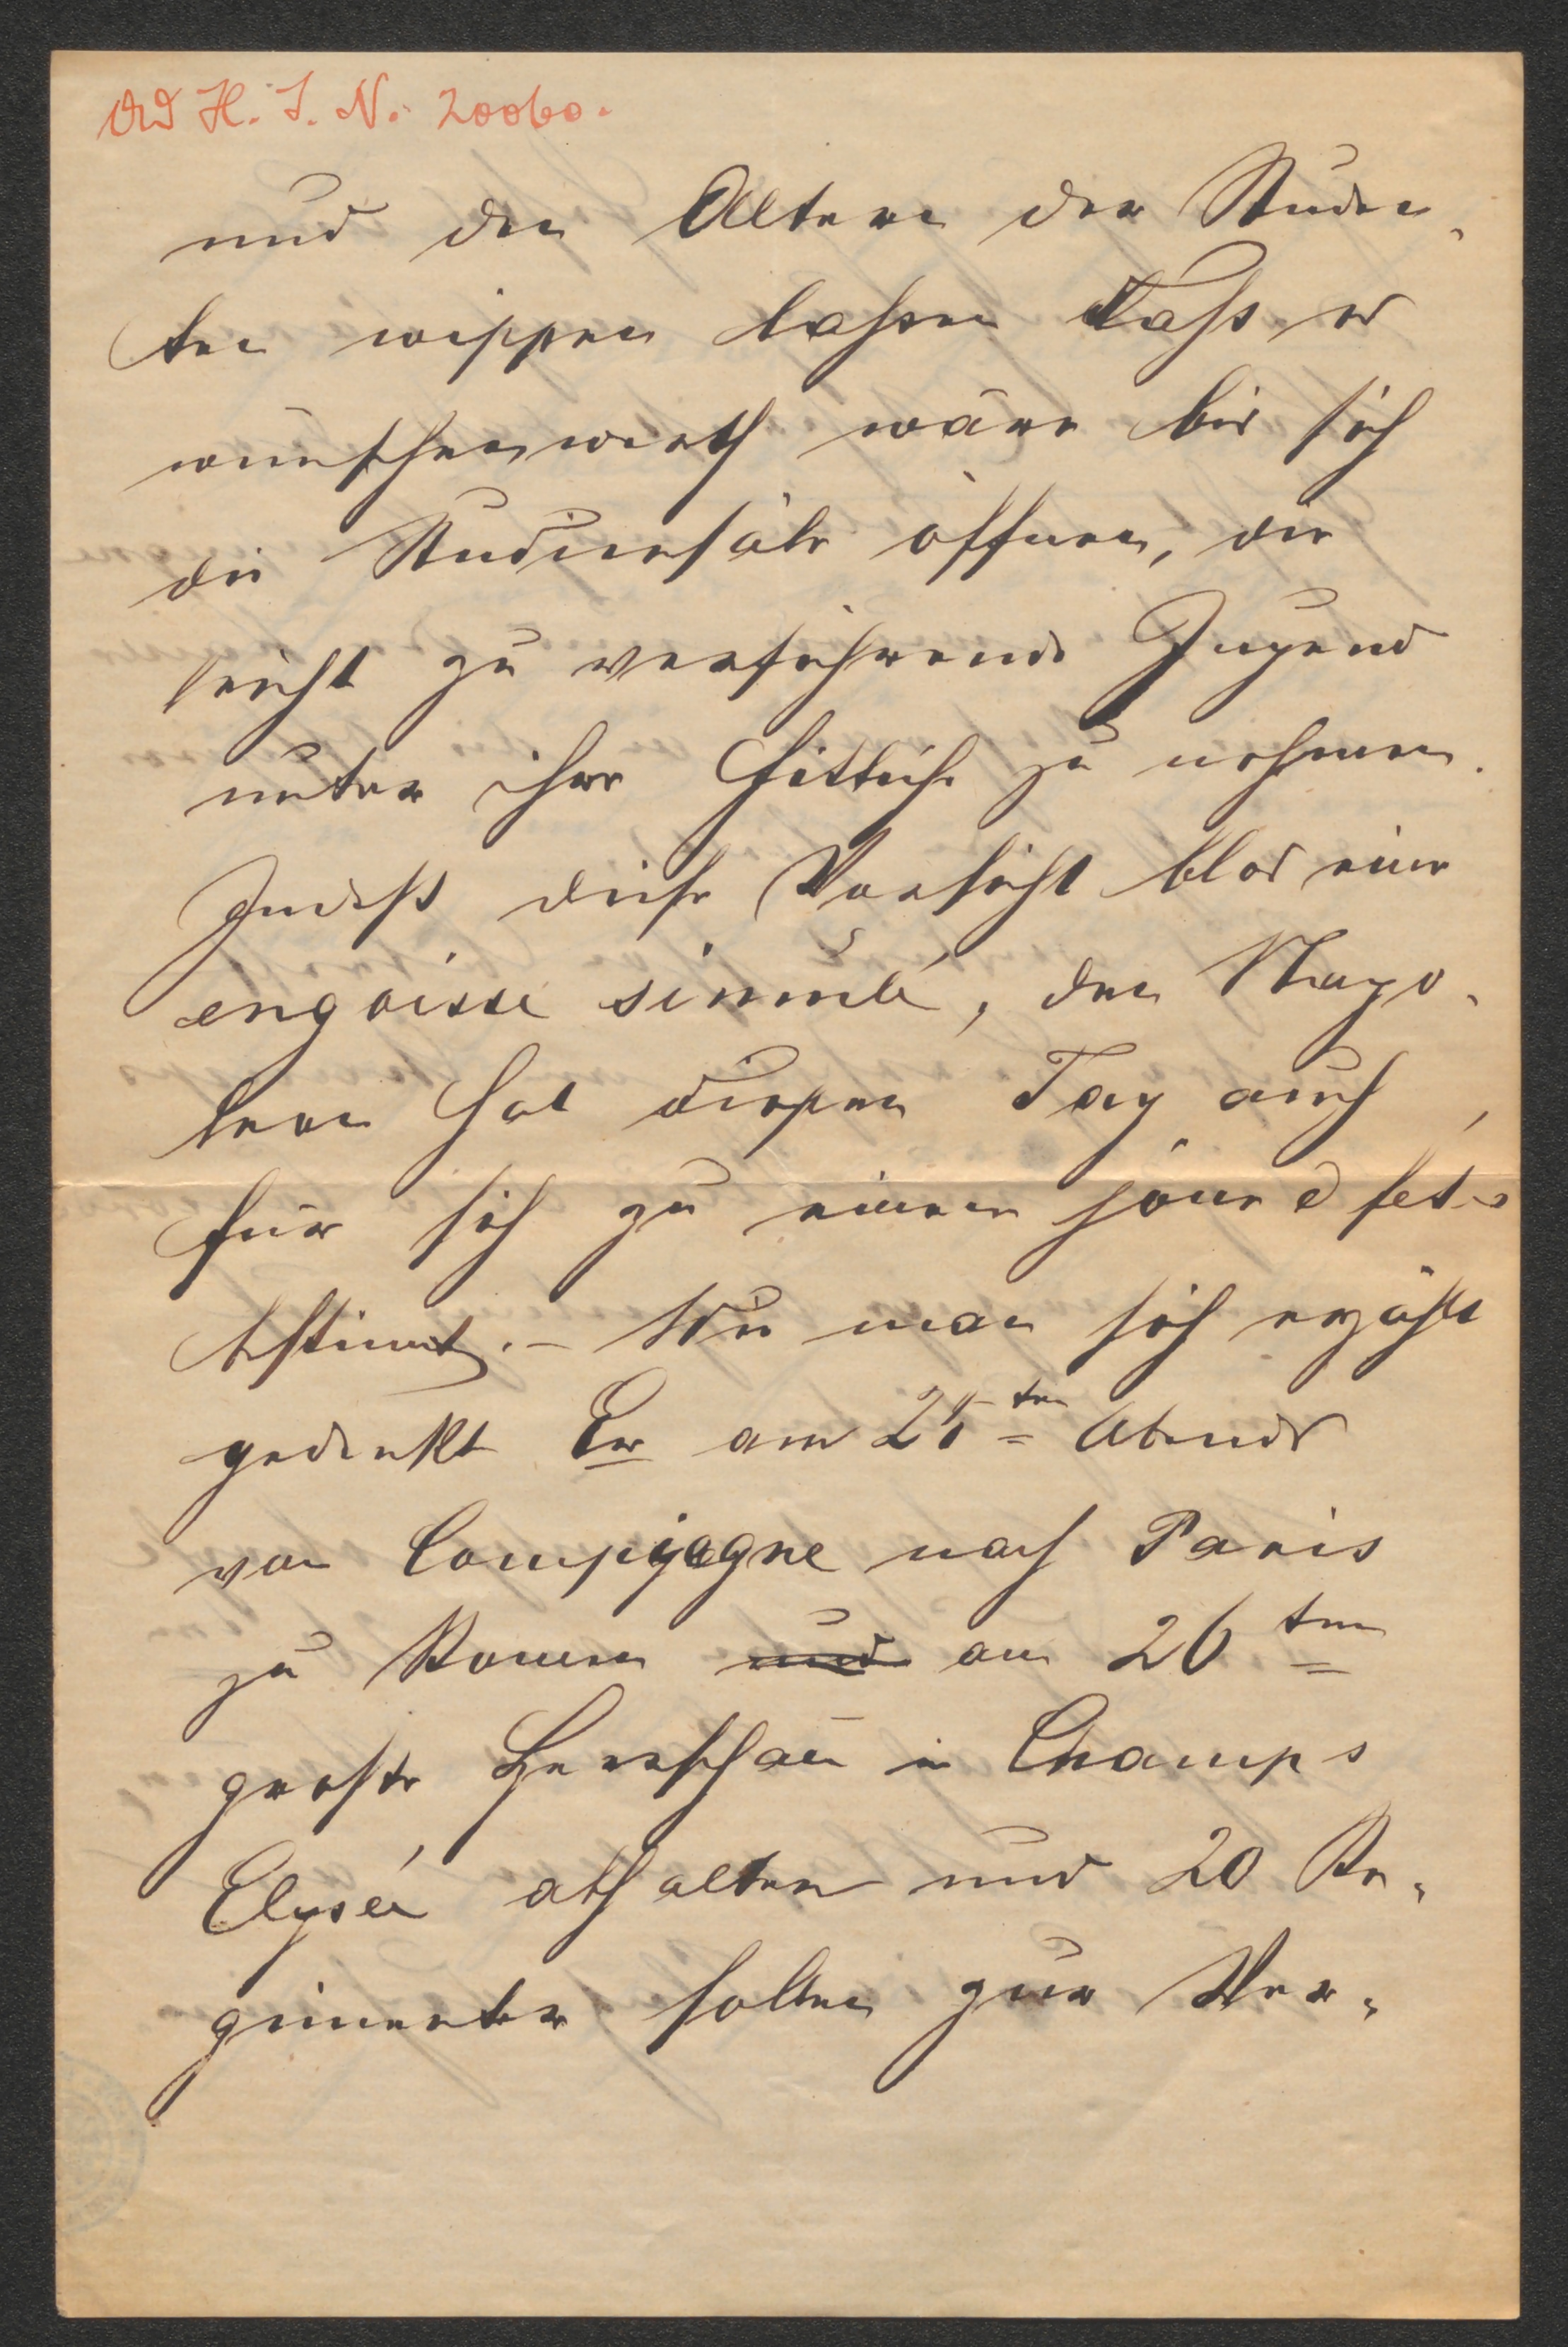 Ad H. I. N. 20060.
und den Altern der Studen-
ten wissen lassen dass es
wünschenswerth wäre bis sich
die Studiensäle öffnen, die
leicht zu verführende Jugend
unter ihre Fittiche zu nehmen.
Indess diese Vorsicht blos eine
angoisse simulé, den Napo-
leon hat diesen Tag auch
für sich zu einem jour d fet
bestimmt. – Wie man sich erzählt
gedenkt Er am 25ten Abends
von Compigagne nach Paris
zu kommen und am 26ten
große Heerschau in Champs
Elysée abhalten und 20 Re-
gimenter sollen zur Ver-